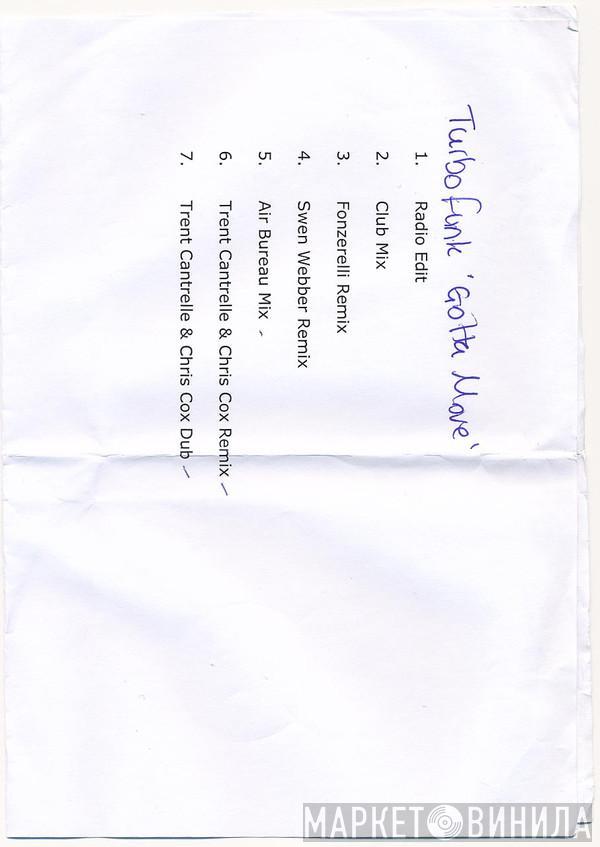 Turbofunk 'Gotta Move'
1. Radio Edit
2. Club Mix
3. Fonzerelli Remix
4. Swen Webber Remix
5. Air Bureau Mix -
6. Trent Cantrelle & Chris Cox Remix -
7. Trent Cantrelle & Chris Cox Dub -
МАРКЕТ ВИНИЛА